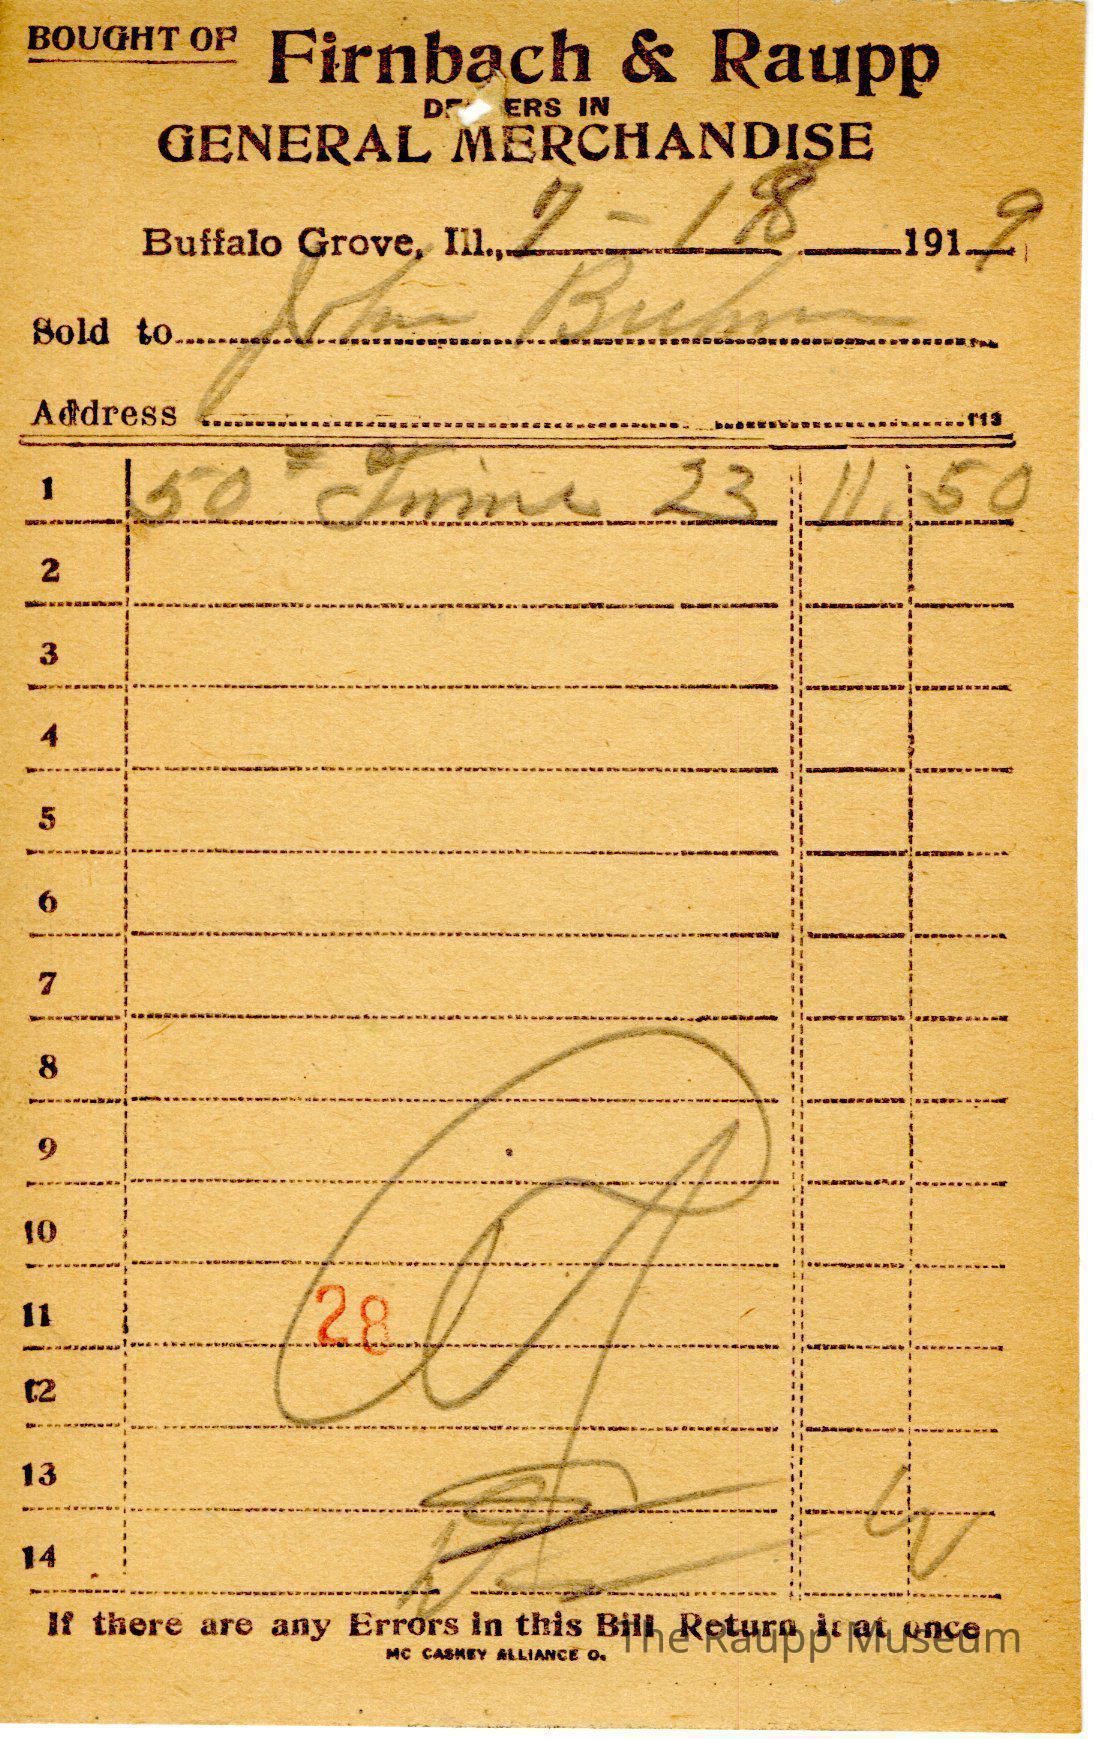 BOUGHT OF Firnbach & Raupp
DEALERS IN
GENERAL MERCHANDISE
Buffalo Grove, Ill., 7-18 1919
Sold to John
Address
1 50# Twine 23 11.50
2
3
4
5
6
7
8
9
10
11 28
12
13
14
If there are any Errors in this Bill Return it at once
MC CASKEY ALLIANCE O.
The Raupp Museum